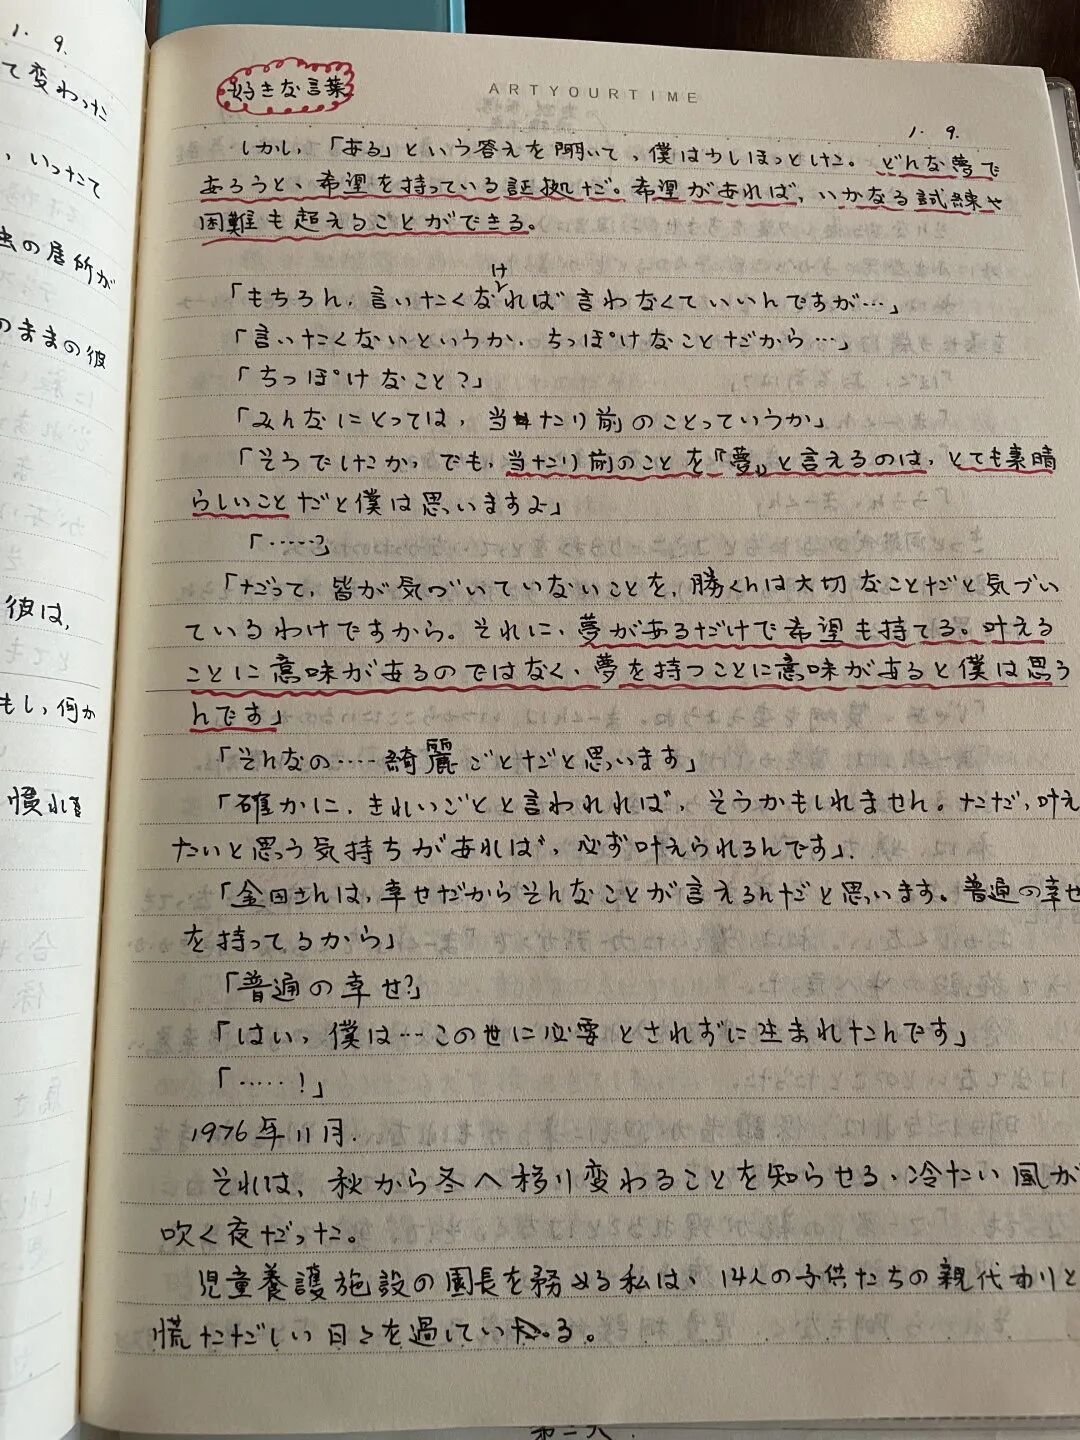 1. 9.
て変わった
、いったて
虫の居所が
のままの彼
彼は、
もし、何か
慣れま
好きな言葉
ARTYOURTIME
1. 9.
しかし、「ある」という答えを聞いて、僕は少しほっとした。どんな夢で
あろうと、希望を持っている証拠だ。希望があれば、いかなる試練や
困難も超えることができる。
け
「もちろん、言いたくなれば言わなくていいんですが…」
「言いたくないというか、ちっぽけなことだから…」
「ちっぽけなこと？」
「みんなにとっては、当たり前のことっていうか」
「そうでしたか、でも、当たり前のことを『夢』と言えるのは、とても素晴
らしいことだと僕は思いますよ」
「……」
「だって、皆が気づいていないことを、勝くんは大切なことだと気づい
ているわけですから。それに、夢があるだけで希望も持てる。叶える
ことに意味があるのではなく、夢を持つことに意味があると僕は思う
んです」
「そんなの……綺麗ごとだと思います」
「確かに、きれいごとと言われれば、そうかもしれません。ただ、叶え
たいと思う気持ちがあれば、必ず叶えられるんです」.
「金田さんは、幸せだからそんなことが言えるんだと思います。普通の幸せ
を持ってるから」
「普通の幸せ?」
「はい、僕は…この世に必要とされずに生まれたんです」
「……！」
1976年11月.
それは、秋から冬へ移り変わることを知らせる、冷たい風が
吹く夜だった。
児童養護施設の園長を務める私は、14人の子供たちの親代わりと
慌ただしい日々を過していた.る。